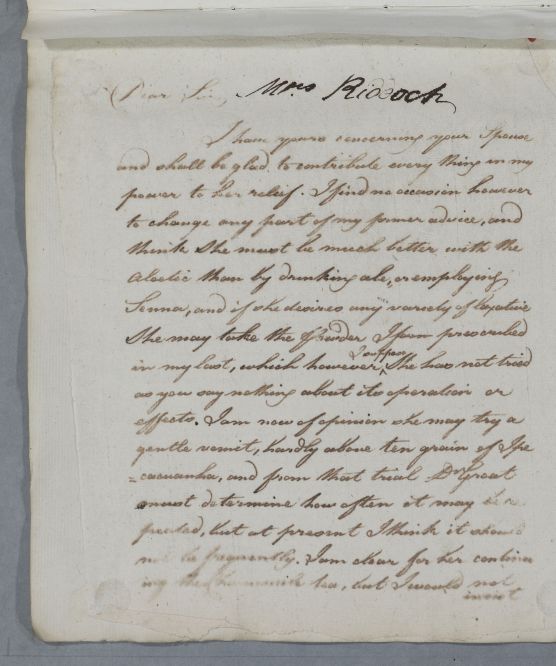 Dear Sir, Mrs Riddoch
I have yours concerning your Spouse
and shall be glad to contribute every thing in my
power to her relief. I find no occasion however
to change any part of my former advice, and
think She must be much better with the
Aloetic than by drinking ale, or employing
Senna, and if she desires any variety of Laxative
She may take the Powder I prescribed
in my last, which however I suppose She has not tried
as you say nothing about its operation or
effects. I am now of opinion she may try a
gentle vomit, hardly above ten grain of Ipe
=cacuanha, and from that trial Dr Groat
must determine how often it may be re
peated, but at present I think it should
not be frequently. I am clear for her continu
ing the tea, but I would not
insist